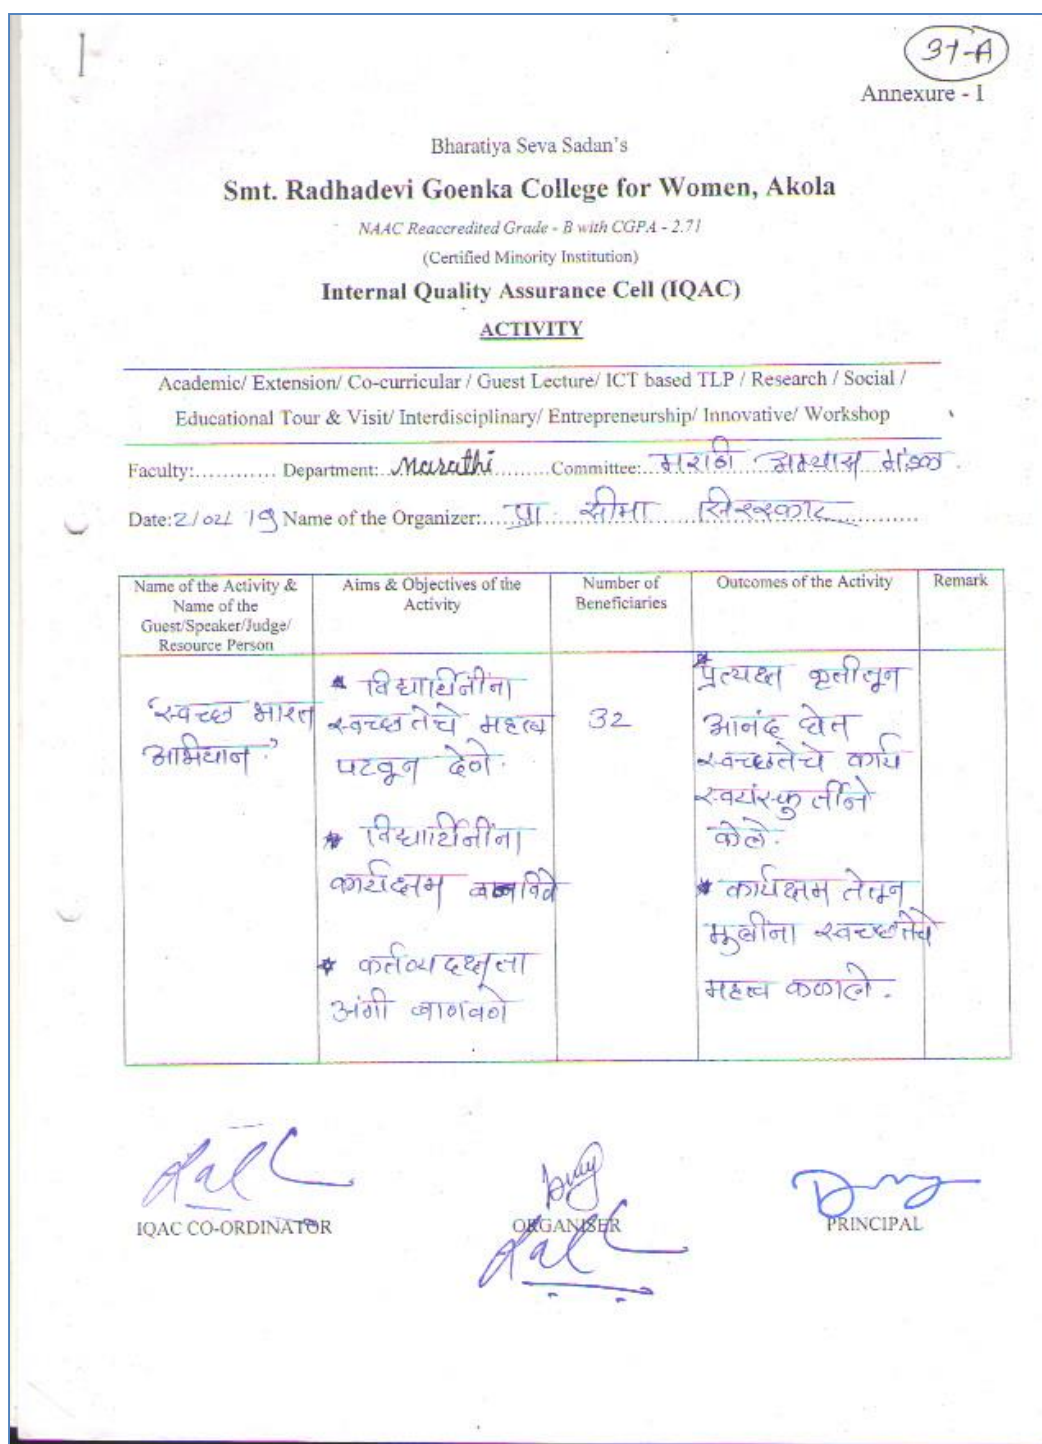 31-A
Annexure - I
Bharatiya Seva Sadan's
Smt. Radhadevi Goenka College for Women, Akola
NAAC Reaccredited Grade - B with CGPA - 2.71
(Certified Minority Institution)
Internal Quality Assurance Cell (IQAC)
ACTIVITY
Academic/ Extension/ Co-curricular / Guest Lecture/ ICT based TLP / Research / Social /
Educational Tour & Visit/ Interdisciplinary/ Entrepreneurship/ Innovative/ Workshop
Faculty:............ Department: Marathi ......... Committee: मराठी अभ्यास मंडळ
Date: 2/02/19 Name of the Organizer:..... प्रा. सीमा
Name of the Activity &
Name of the
Guest/Speaker/Judge/
Resource Person
Aims & Objectives of the
Activity
Number of
Beneficiaries
Outcomes of the Activity
Remark
"स्वच्छ भारत
अभियान"
* विद्यार्थिनींना
स्वच्छतेचे महत्व
पटवून देणे.
* विद्यार्थिनींना
कार्यक्षम बनविणे
* कर्तव्यदक्षता
अंगी बाणवणे
32
* प्रत्यक्ष कृतीतून
आनंद घेत
स्वच्छतेचे कार्य
स्वयंस्फुर्तीने
केले.
* कार्यक्षमतेतून
मुलींना स्वच्छतेचे
महत्व कळाले.
IQAC CO-ORDINATOR
ORGANISER
PRINCIPAL